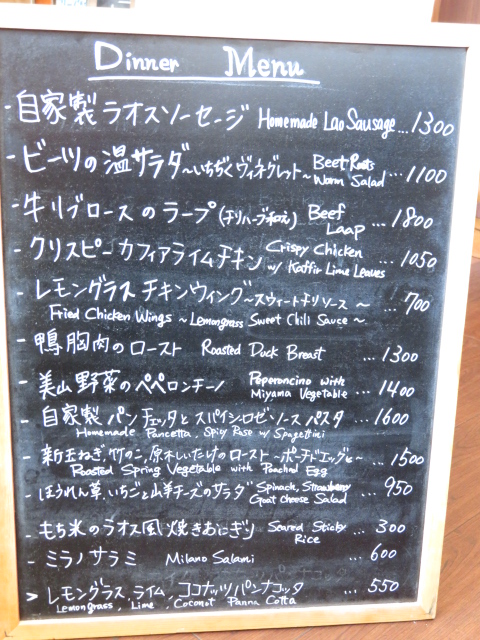 Dinner Menu
- 自家製ラオスソーセージ Homemade Lao Sausage ... 1300
- ビーツの温サラダ~いちぢくヴィネグレット~ Beet Roots Warm Salad ... 1100
- 牛リブロースのラープ(チリハーブ和え) Beef Laap ... 1800
- クリスピーカフィアライムチキン Crispy Chicken w/ Kaffir Lime Leaves ... 1050
- レモングラスチキンウィング~スウィートチリソース~ ... 700
Fried Chicken Wings ~ Lemongrass Sweet Chili Sauce ~
- 鴨胸肉のロースト Roasted Duck Breast ... 1300
- 美山野菜のペペロンチーノ Peperoncino with Miyama Vegetable ... 1400
- 自家製パンチェッタとスパイシーロゼソースパスタ ... 1600
Homemade Pancetta, Spicy Rose w/ Spagettini
- 新玉ねぎ,竹のこ,原木しいたけのロースト~ポーチドエッグと~ ... 1500
Roasted Spring Vegetable with Poached Egg
- ほうれん草,いちごと山羊チーズのサラダ Spinach, Strawberry Goat Cheese Salad ... 950
- もち米のラオス風焼きおにぎり Seared Sticky Rice ... 300
- ミラノサラミ Milano Salami ... 600
> レモングラス,ライム,ココナッツパンナコッタ ... 550
Lemongrass, Lime, Coconut Panna Cotta